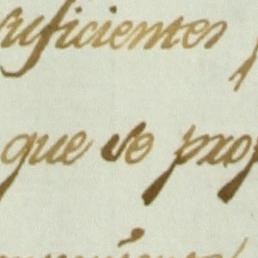 suficientes
que se prop